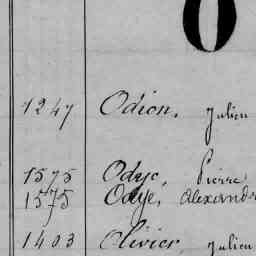 O
1247 Odion, Julien
1575 Odye, Pierre
1575 Odye, Alexandre
1403 Olivier, Julien